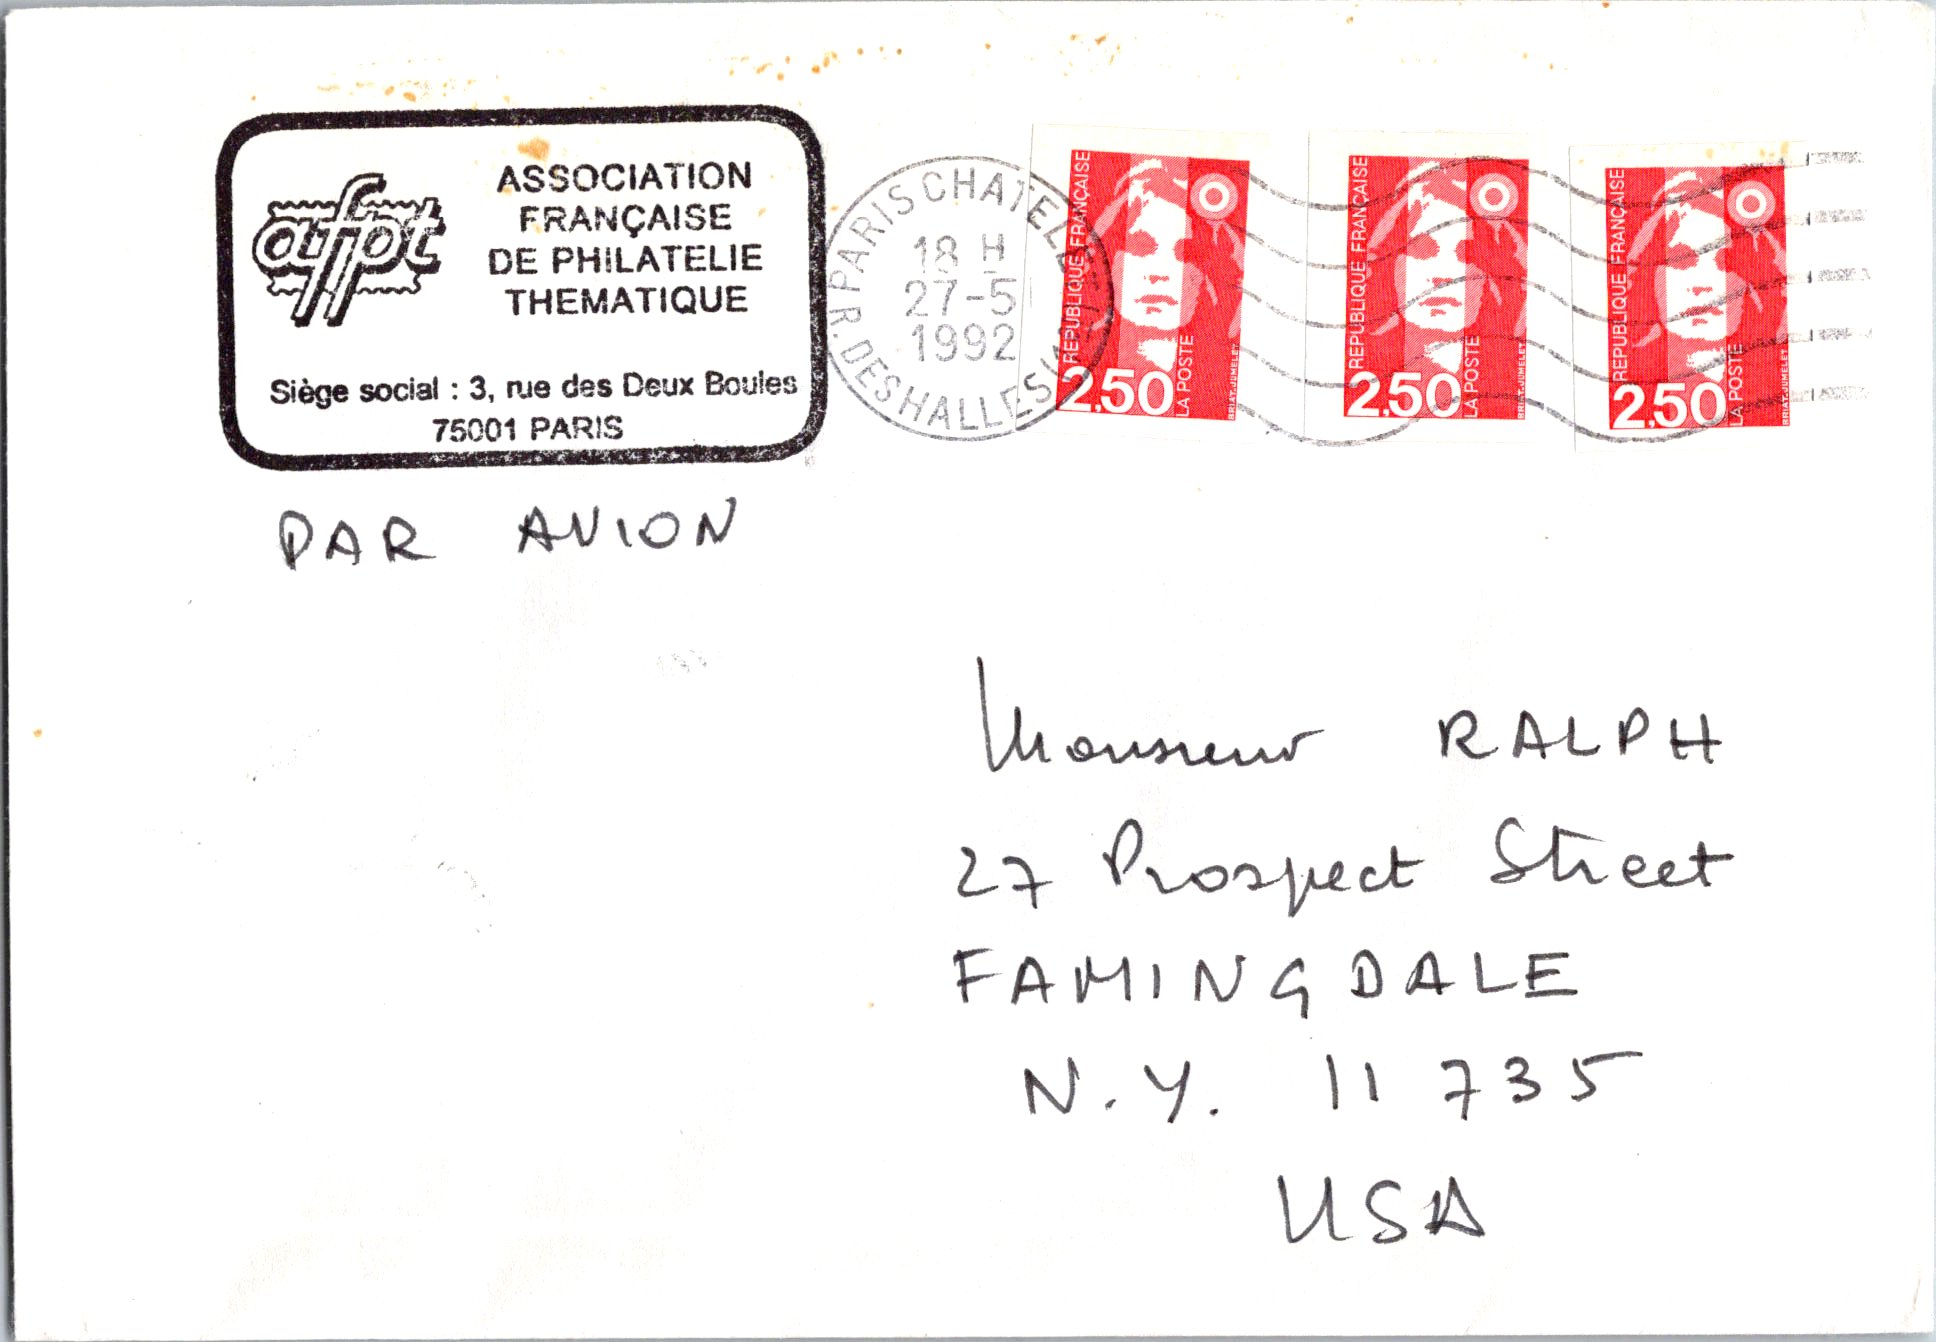 afpt
ASSOCIATION
FRANÇAISE
DE PHILATELIE
THEMATIQUE
Siège social : 3, rue des Deux Boules
75001 PARIS
PARIS CHATELET
18 H
27-5
1992
R. DES HALLES (1ER)
REPUBLIQUE FRANÇAISE
2,50
LA POSTE
BRIAT-JUMELET
REPUBLIQUE FRANÇAISE
2,50
LA POSTE
BRIAT-JUMELET
REPUBLIQUE FRANÇAISE
2,50
LA POSTE
BRIAT-JUMELET
PAR AVION
Monsieur RALPH
27 Prospect Street
FAMINGDALE
N.Y. 11 735
USA